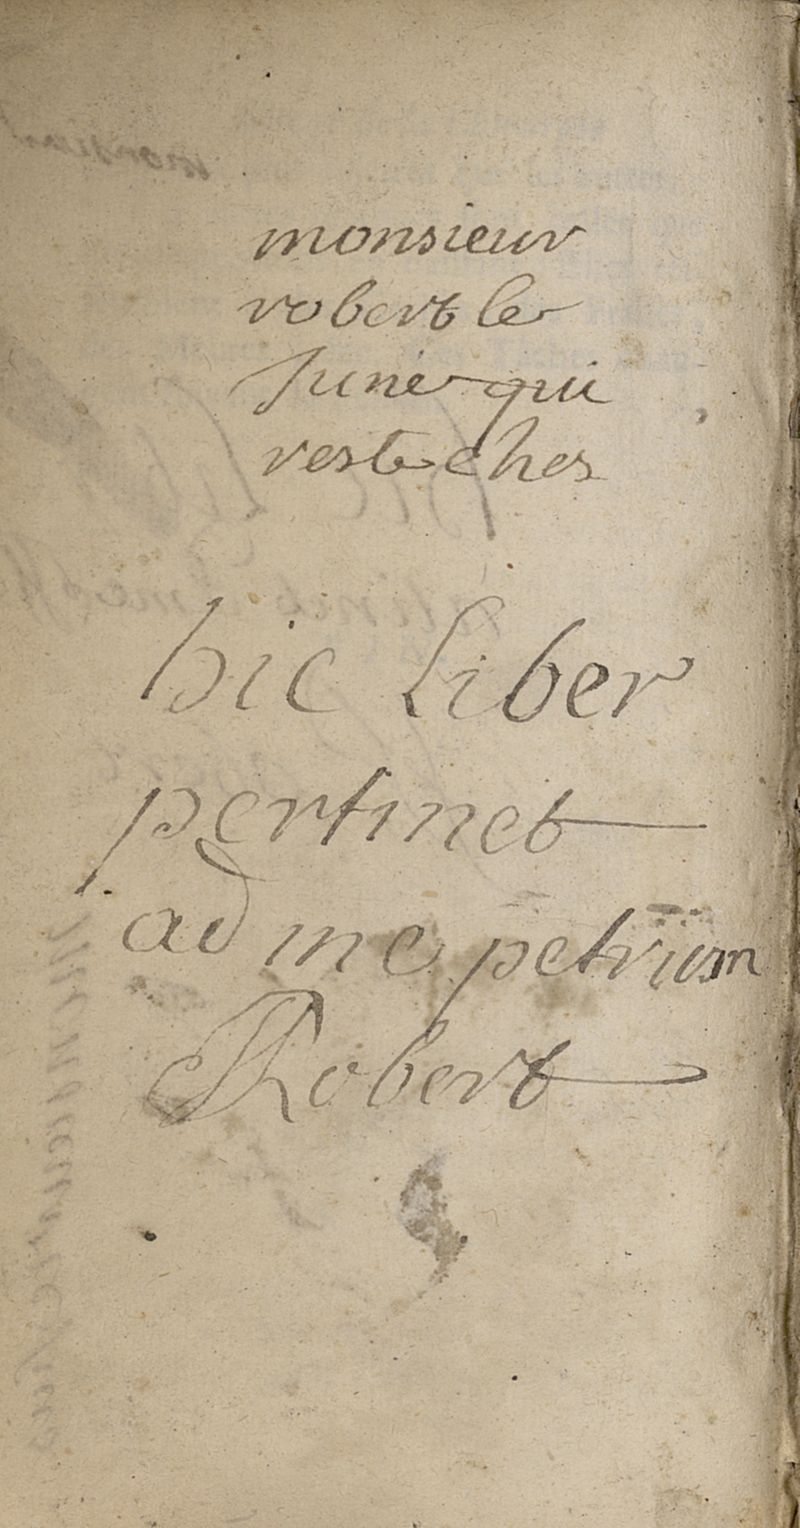 monsieur
robert le
june qui
reste ches
hic Liber
pertinet
ad me petrum
Robert